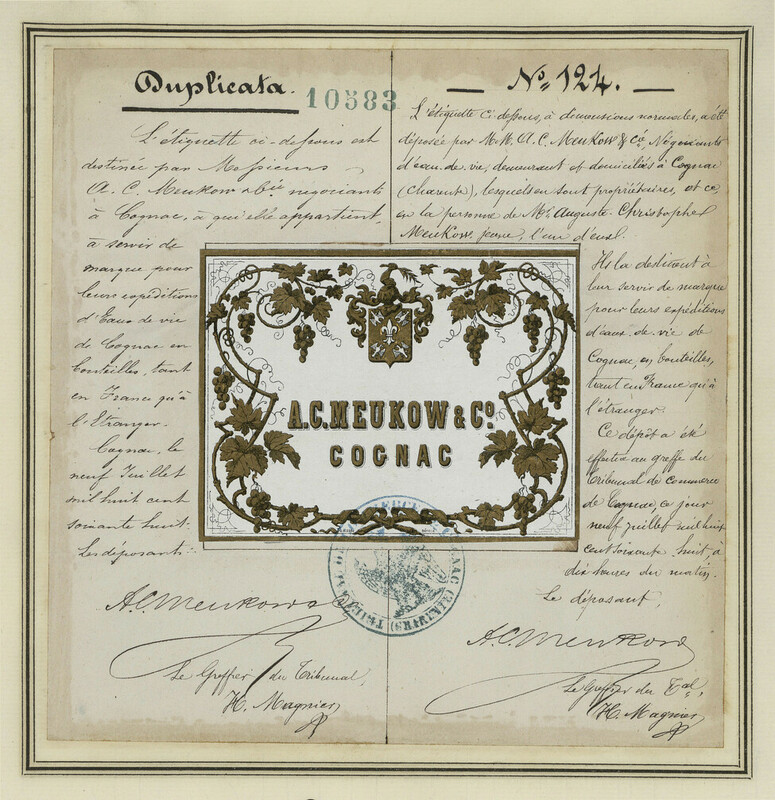 Duplicata.
10583
L'étiquette ci-dessous est
destinée par Messieurs
A. C. Meukow & Cie négociants
à Cognac, à qui elle appartient,
à servir de
marque pour
leurs expéditions
d'Eaux de vie
de Cognac en
bouteilles, tant
en France qu'à
l'Etranger.
Cognac, le
neuf Juillet
mil huit cent
soixante huit.
Les déposants:
A. C. Meukow
Le Greffier du Tribunal,
H. Magnier
No. 124.
L'étiquette ci-dessous, à dimensions normales, a été
déposée par M.M. A. C. Meukow & Co, Négociants
d'eau de vie, demeurant et domiciliés à Cognac
(Charente), lesquels en sont propriétaires, et ce,
en la personne de Mr. Auguste-Christophe
Meukow, jeune, l'un d'eux.
Ils la destinent à
leur servir de marque
pour leurs expéditions
d'eaux de vie de
Cognac, en bouteilles,
tant en France qu'à
l'étranger.
Ce dépôt a été
effectué au greffe du
Tribunal de commerce
de Cognac, ce jour
neuf juillet mil huit
cent soixante-huit, à
dix heures du matin.
Le déposant,
A. C. Meukow
Le Greffier du Tal,
H. Magnier
A.C. MEUKOW & Co.
COGNAC